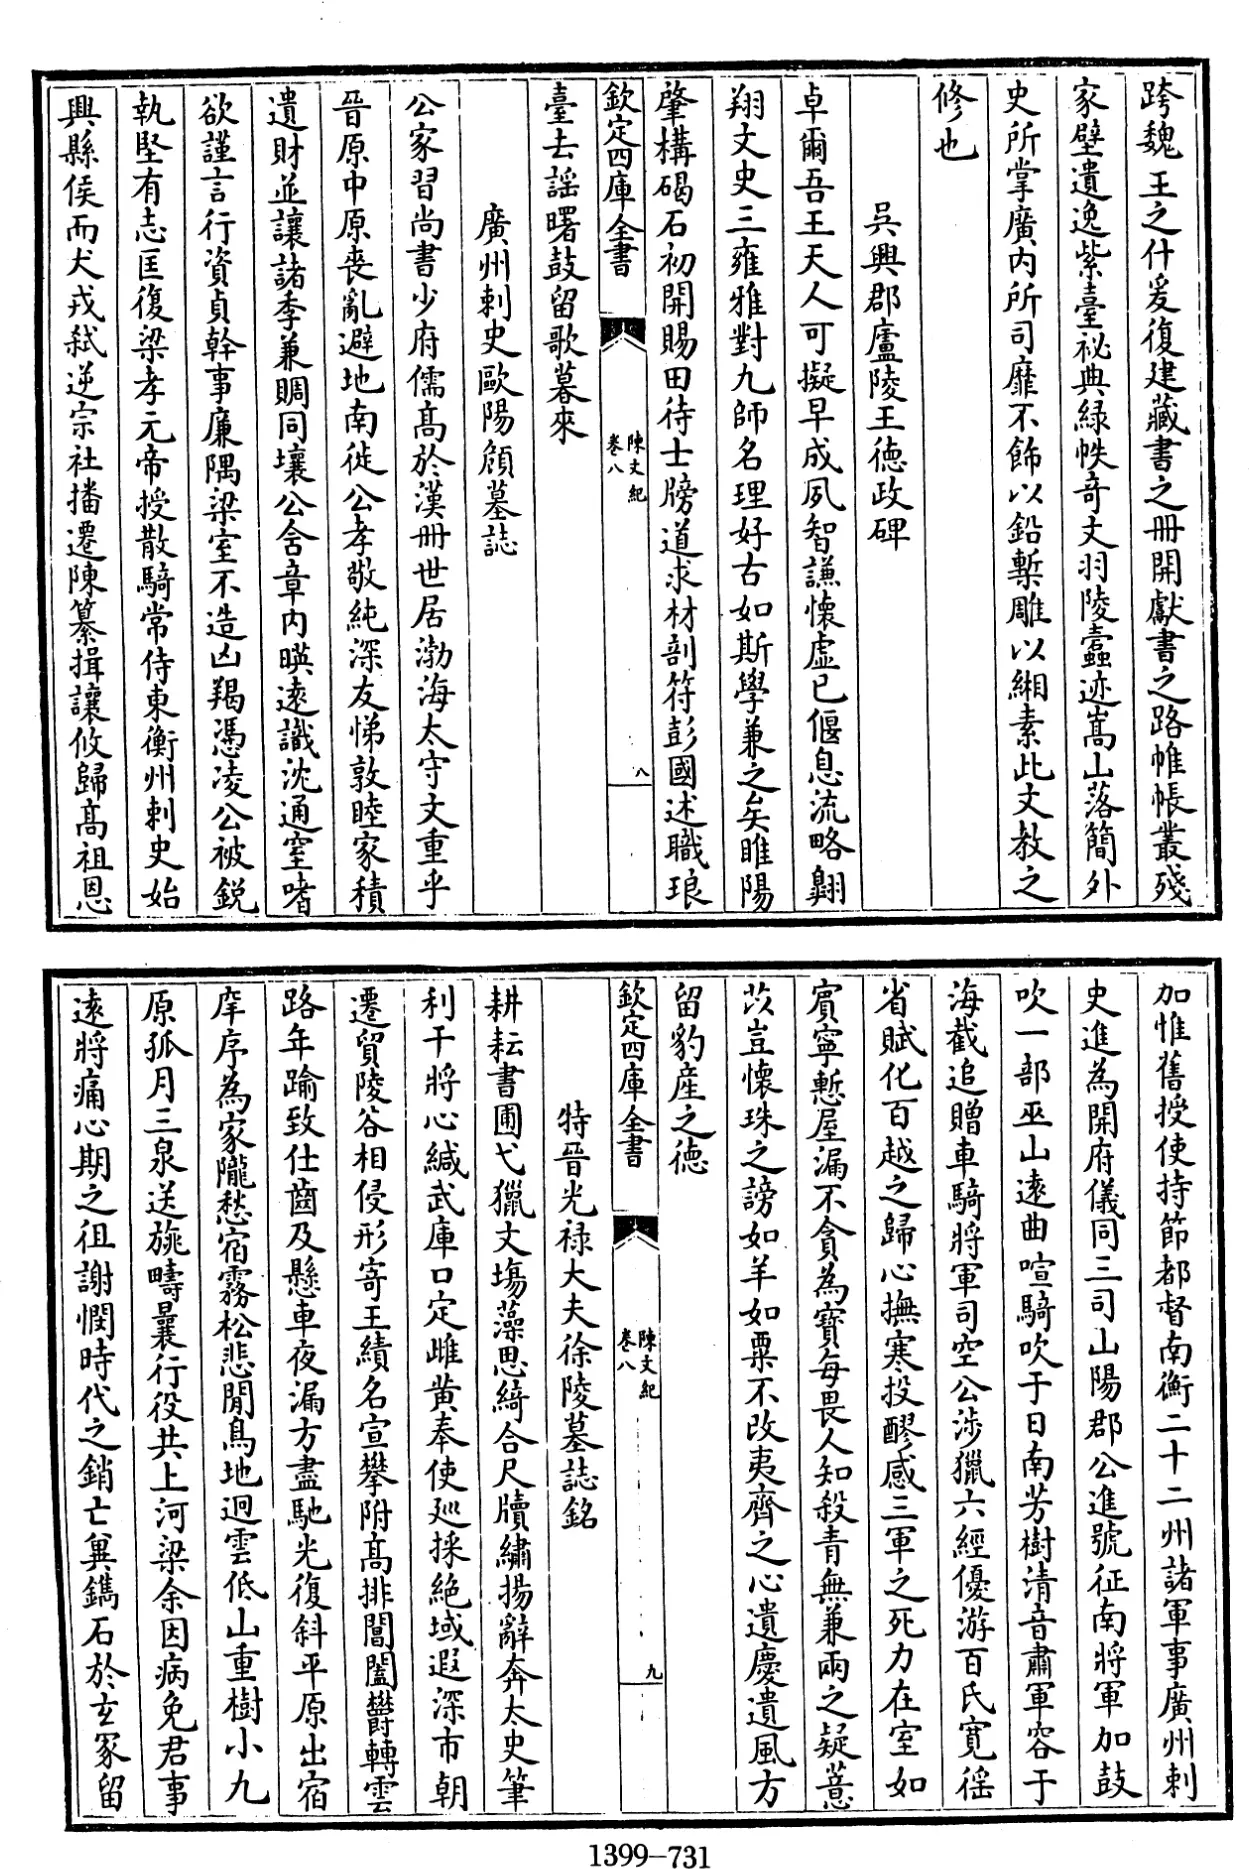 跨魏王之什爰復建藏書之冊開獻書之路帷帳叢殘
家壁遺逸紫臺祕典緑帙竒文羽陵蠧迹嵩山落簡外
史所掌廣内所司靡不飾以鉛槧雕以緗素此文教之
修也
吳興郡廬陵王徳政碑
卓爾吾王天人可擬早成夙智謙懷虛已偃息流略翺
翔文史三雍雅對九師名理好古如斯學兼之矣睢陽
肇構碣石初開賜田待士牓道求材剖符彭國述職琅
欽定四庫全書
陳文紀
卷八
八
臺去謡曙鼓留歌暮來
廣州刺史歐陽頠墓誌
公家習尚書少府儒髙於漢冊世居渤海太守文重乎
晉原中原喪亂避地南徙公孝敬純深友悌敦睦家積
遺財並讓諸季兼賙同壤公含章内暎逺識沈通窒嗜
欲謹言行資貞幹事廉隅梁室不造凶羯憑凌公被鋭
執堅有志匡復梁孝元帝授散騎常侍東衡州刺史始
興縣侯而犬戎弑逆宗社播遷陳纂揖讓攸歸髙祖恩
加惟舊授使持節都督南衡二十二州諸軍事廣州刺
史進為開府儀同三司山陽郡公進號征南將軍加鼓
吹一部巫山逺曲喧騎吹于日南芳樹清音肅軍容于
海截追贈車騎將軍司空公涉獵六經優游百氏寛徭
省賦化百越之歸心撫寒投醪感三軍之死力在室如
賔寧慙屋漏不貪為寳每畏人知殺青無兼兩之疑薏
苡豈懷珠之謗如羊如粟不改夷齊之心遺慶遺風方
留豹産之徳
欽定四庫全書
陳文紀
卷八
九
特晉光禄大夫徐陵墓誌銘
耕耘書圃弋獵文塲藻思綺合尺牘繡揚辭奔太史筆
利干將心緘武庫口定雌黄奉使廵採絶域遐深市朝
遷貿陵谷相侵形寄王績名宣攀附髙排閶闔欝轉雲
路年踰致仕齒及懸車夜漏方盡馳光復斜平原出宿
庠序為家隴愁宿霧松悲聞鳥地迥雲低山重樹小九
原孤月三泉送旐疇曩行役共上河梁余因病免君事
逺將痛心期之徂謝惘時代之銷亡兾鐫石於玄冢留
1399-731